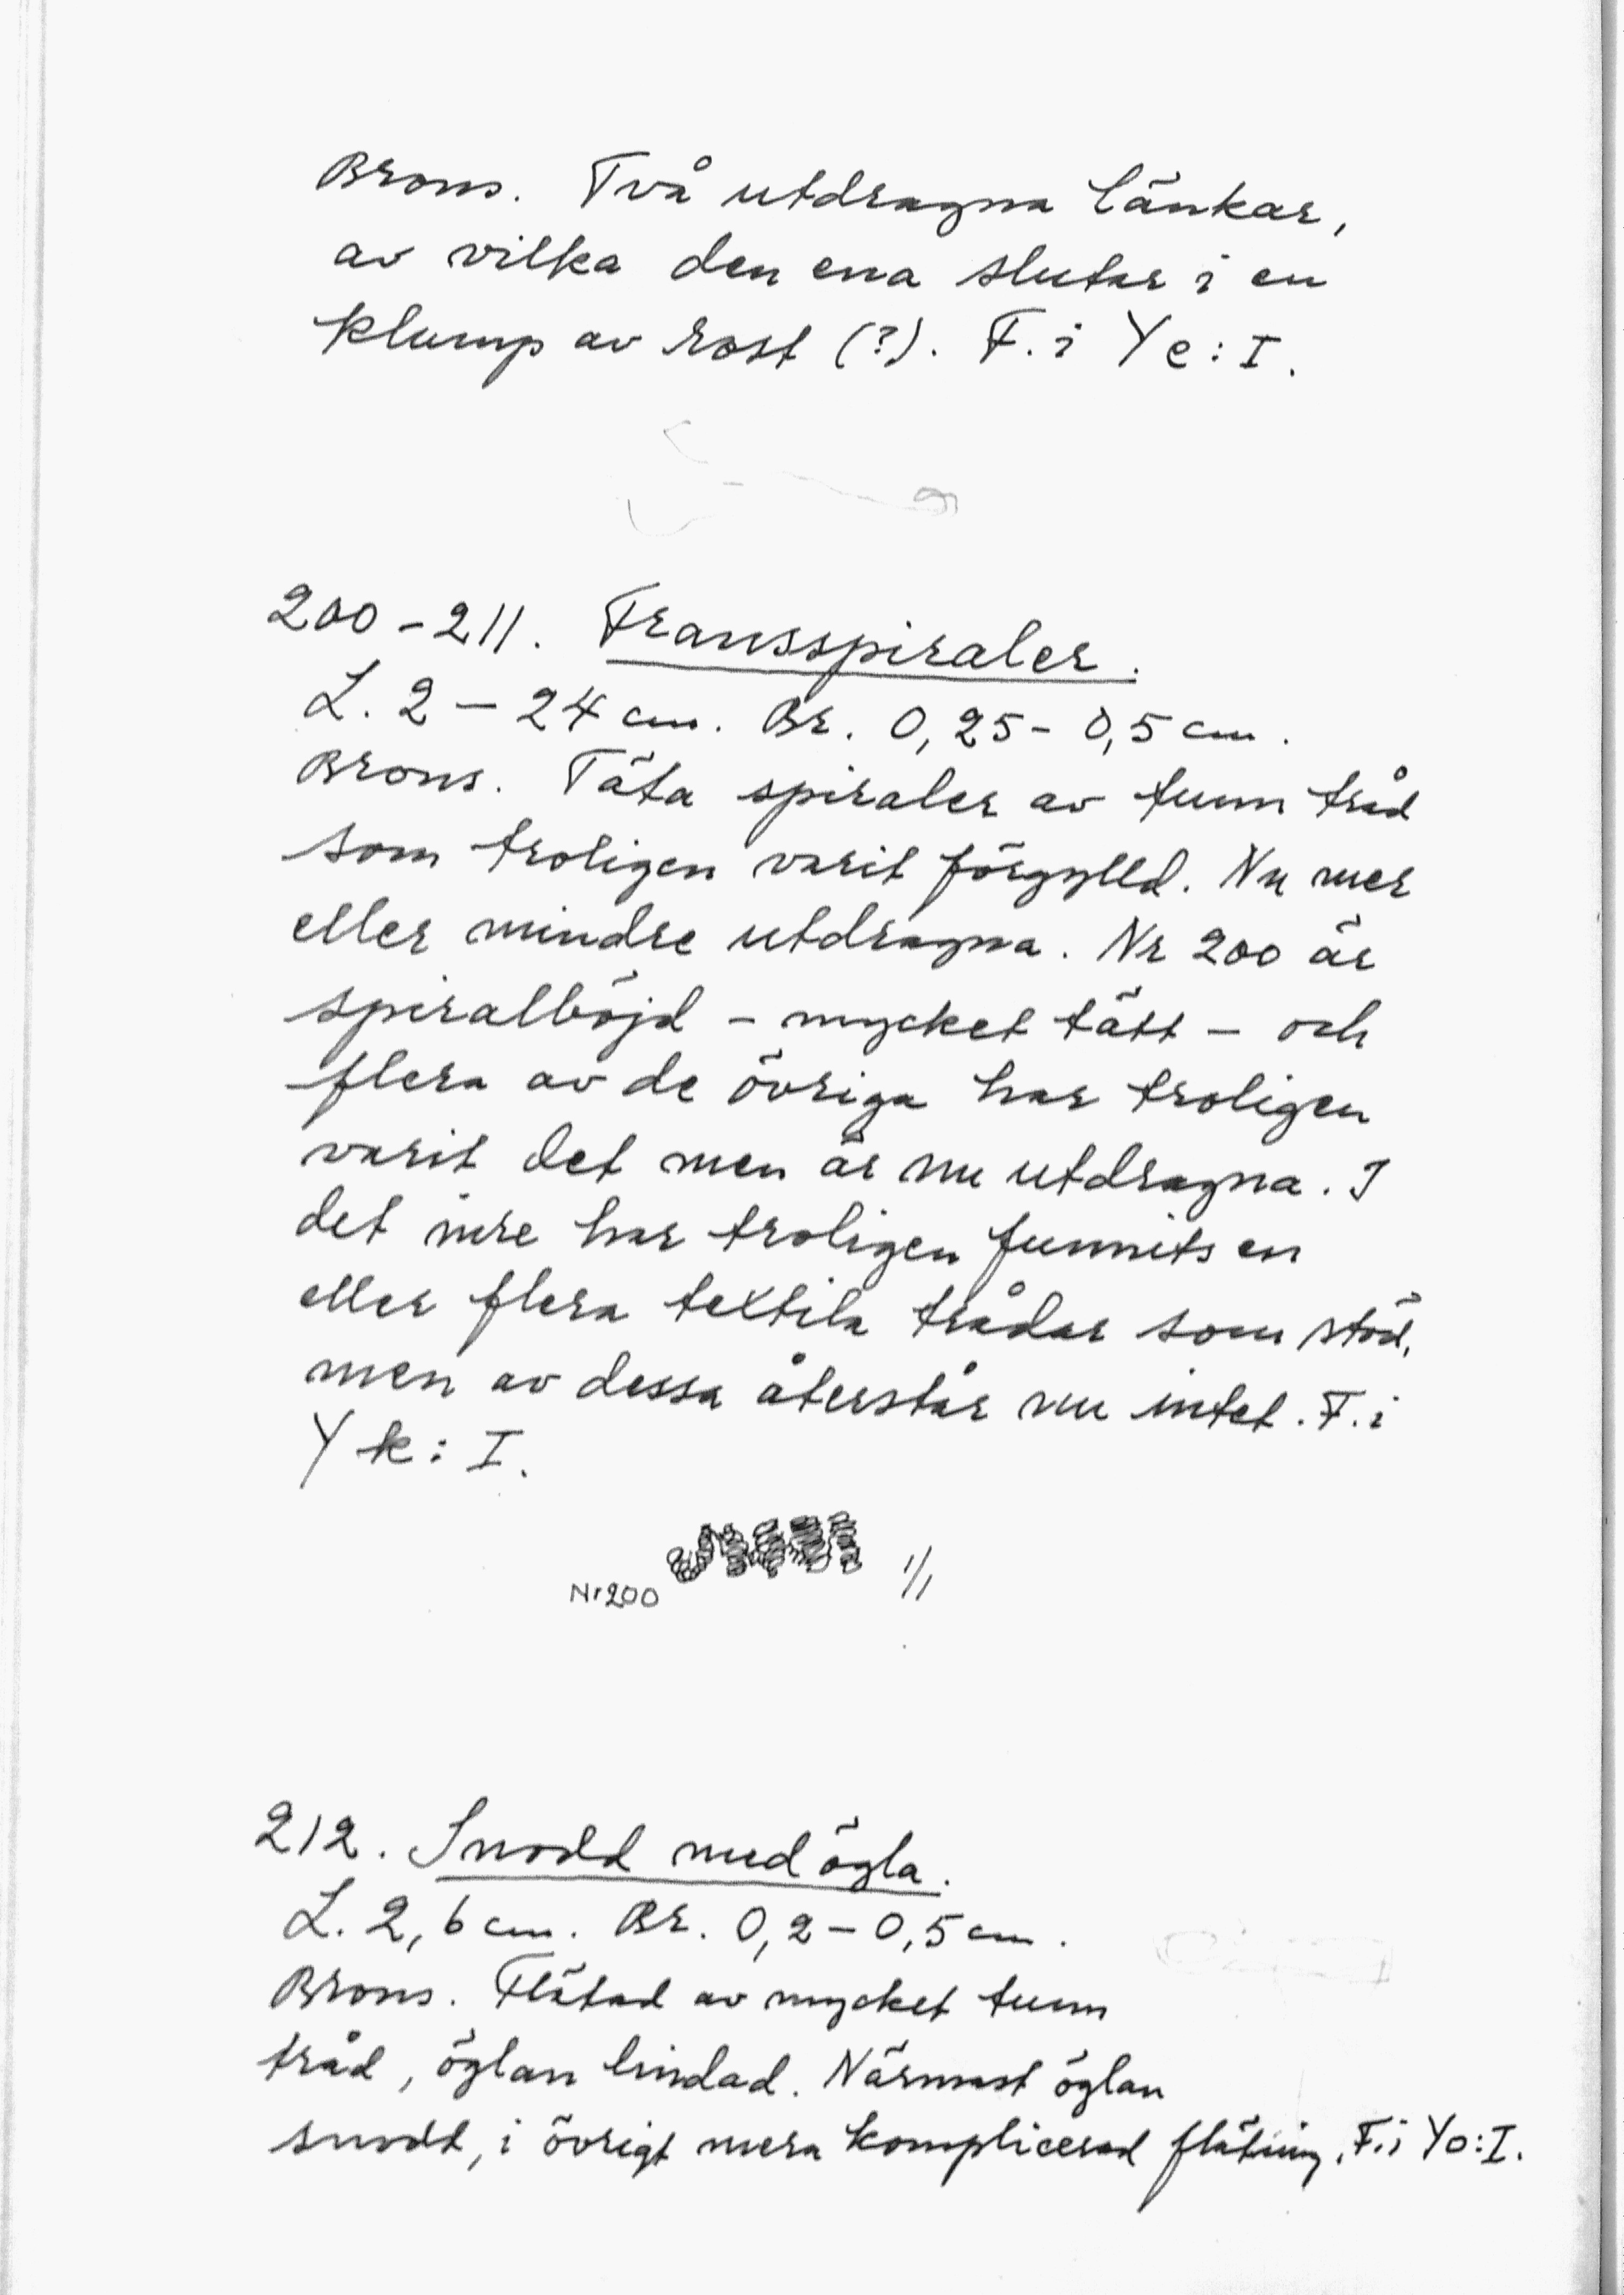 Brons. Två utdragna länkar,
av vilka den ena slutar i en
klump av rost (?). F. i Y e : I.
200-211. Fransspiraler.
L. 2 - 24 cm. Br. 0,25 - 0,5 cm.
Brons. Täta spiraler av tunn tråd
som troligen varit förgylld. Nu mer
eller mindre utdragna. Nr 200 är
spiralböjd - mycket tätt - och
flera av de övriga har troligen
varit det men är nu utdragna. I
det inre har troligen funnits en
eller flera textila trådar som stöd,
men av dessa återstår nu intet. F. i
Y k : I.
Nr 200 1/1
212. Snodd med ögla.
L. 2,6 cm. Br. 0,2 - 0,5 cm.
Brons. Flätad av mycket tunn
tråd, öglan lindad. Närmast öglan
snodd, i övrigt mera komplicerad flätning. F. i Yo: I.